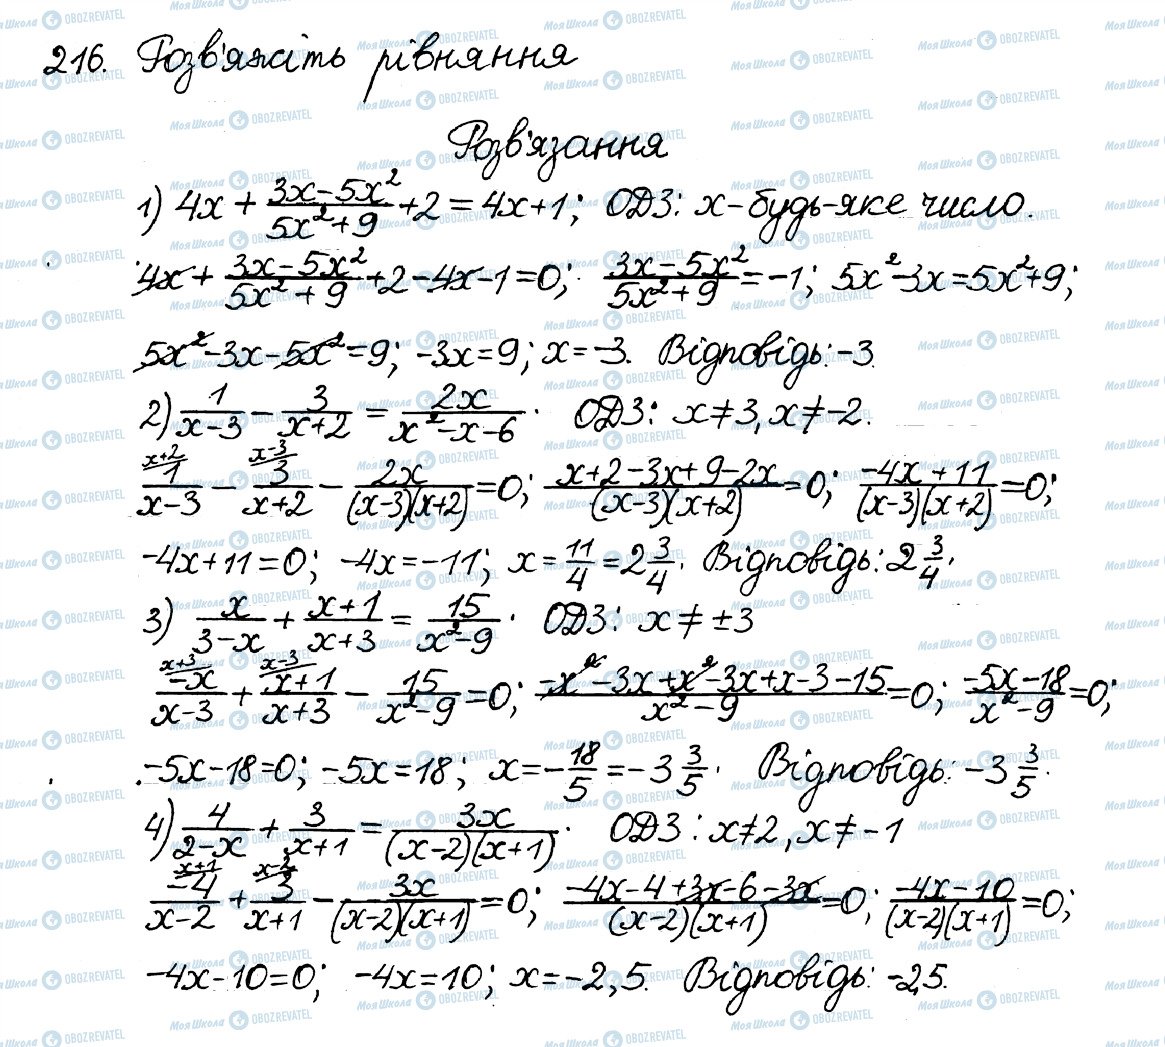 216. Розв'яжіть рівняння
Розв'язання
1) 4x + (3x-5x²)/(5x²+9) + 2 = 4x+1; ОДЗ: x - будь-яке число.
4x + (3x-5x²)/(5x²+9) + 2 - 4x - 1 = 0; (3x-5x²)/(5x²+9) = -1; 5x²-3x = 5x²+9;
5x²-3x-5x²=9; -3x=9; x=-3. Відповідь: -3.
2) 1/(x-3) - 3/(x+2) = 2x/(x²-x-6). ОДЗ: x≠3, x≠-2.
x+2 x-3
1/(x-3) - 3/(x+2) - 2x/((x-3)(x+2)) = 0; (x+2-3x+9-2x)/((x-3)(x+2)) = 0; (-4x+11)/((x-3)(x+2)) = 0;
-4x+11=0; -4x=-11; x = 11/4 = 2 3/4. Відповідь: 2 3/4.
3) x/(3-x) + (x+1)/(x+3) = 15/(x²-9). ОДЗ: x≠±3
x+3 x-3
-x/(x-3) + (x+1)/(x+3) - 15/(x²-9) = 0; (-x²-3x+x²-3x+x-3-15)/(x²-9) = 0; (-5x-18)/(x²-9) = 0;
-5x-18=0; -5x=18; x = -18/5 = -3 3/5. Відповідь: -3 3/5.
4) 4/(2-x) + 3/(x+1) = 3x/((x-2)(x+1)). ОДЗ: x≠2, x≠-1
x+1 x-2
-4/(x-2) + 3/(x+1) - 3x/((x-2)(x+1)) = 0; (-4x-4+3x-6-3x)/((x-2)(x+1)) = 0; (-4x-10)/((x-2)(x+1)) = 0;
-4x-10=0; -4x=10; x=-2,5. Відповідь: -2,5.